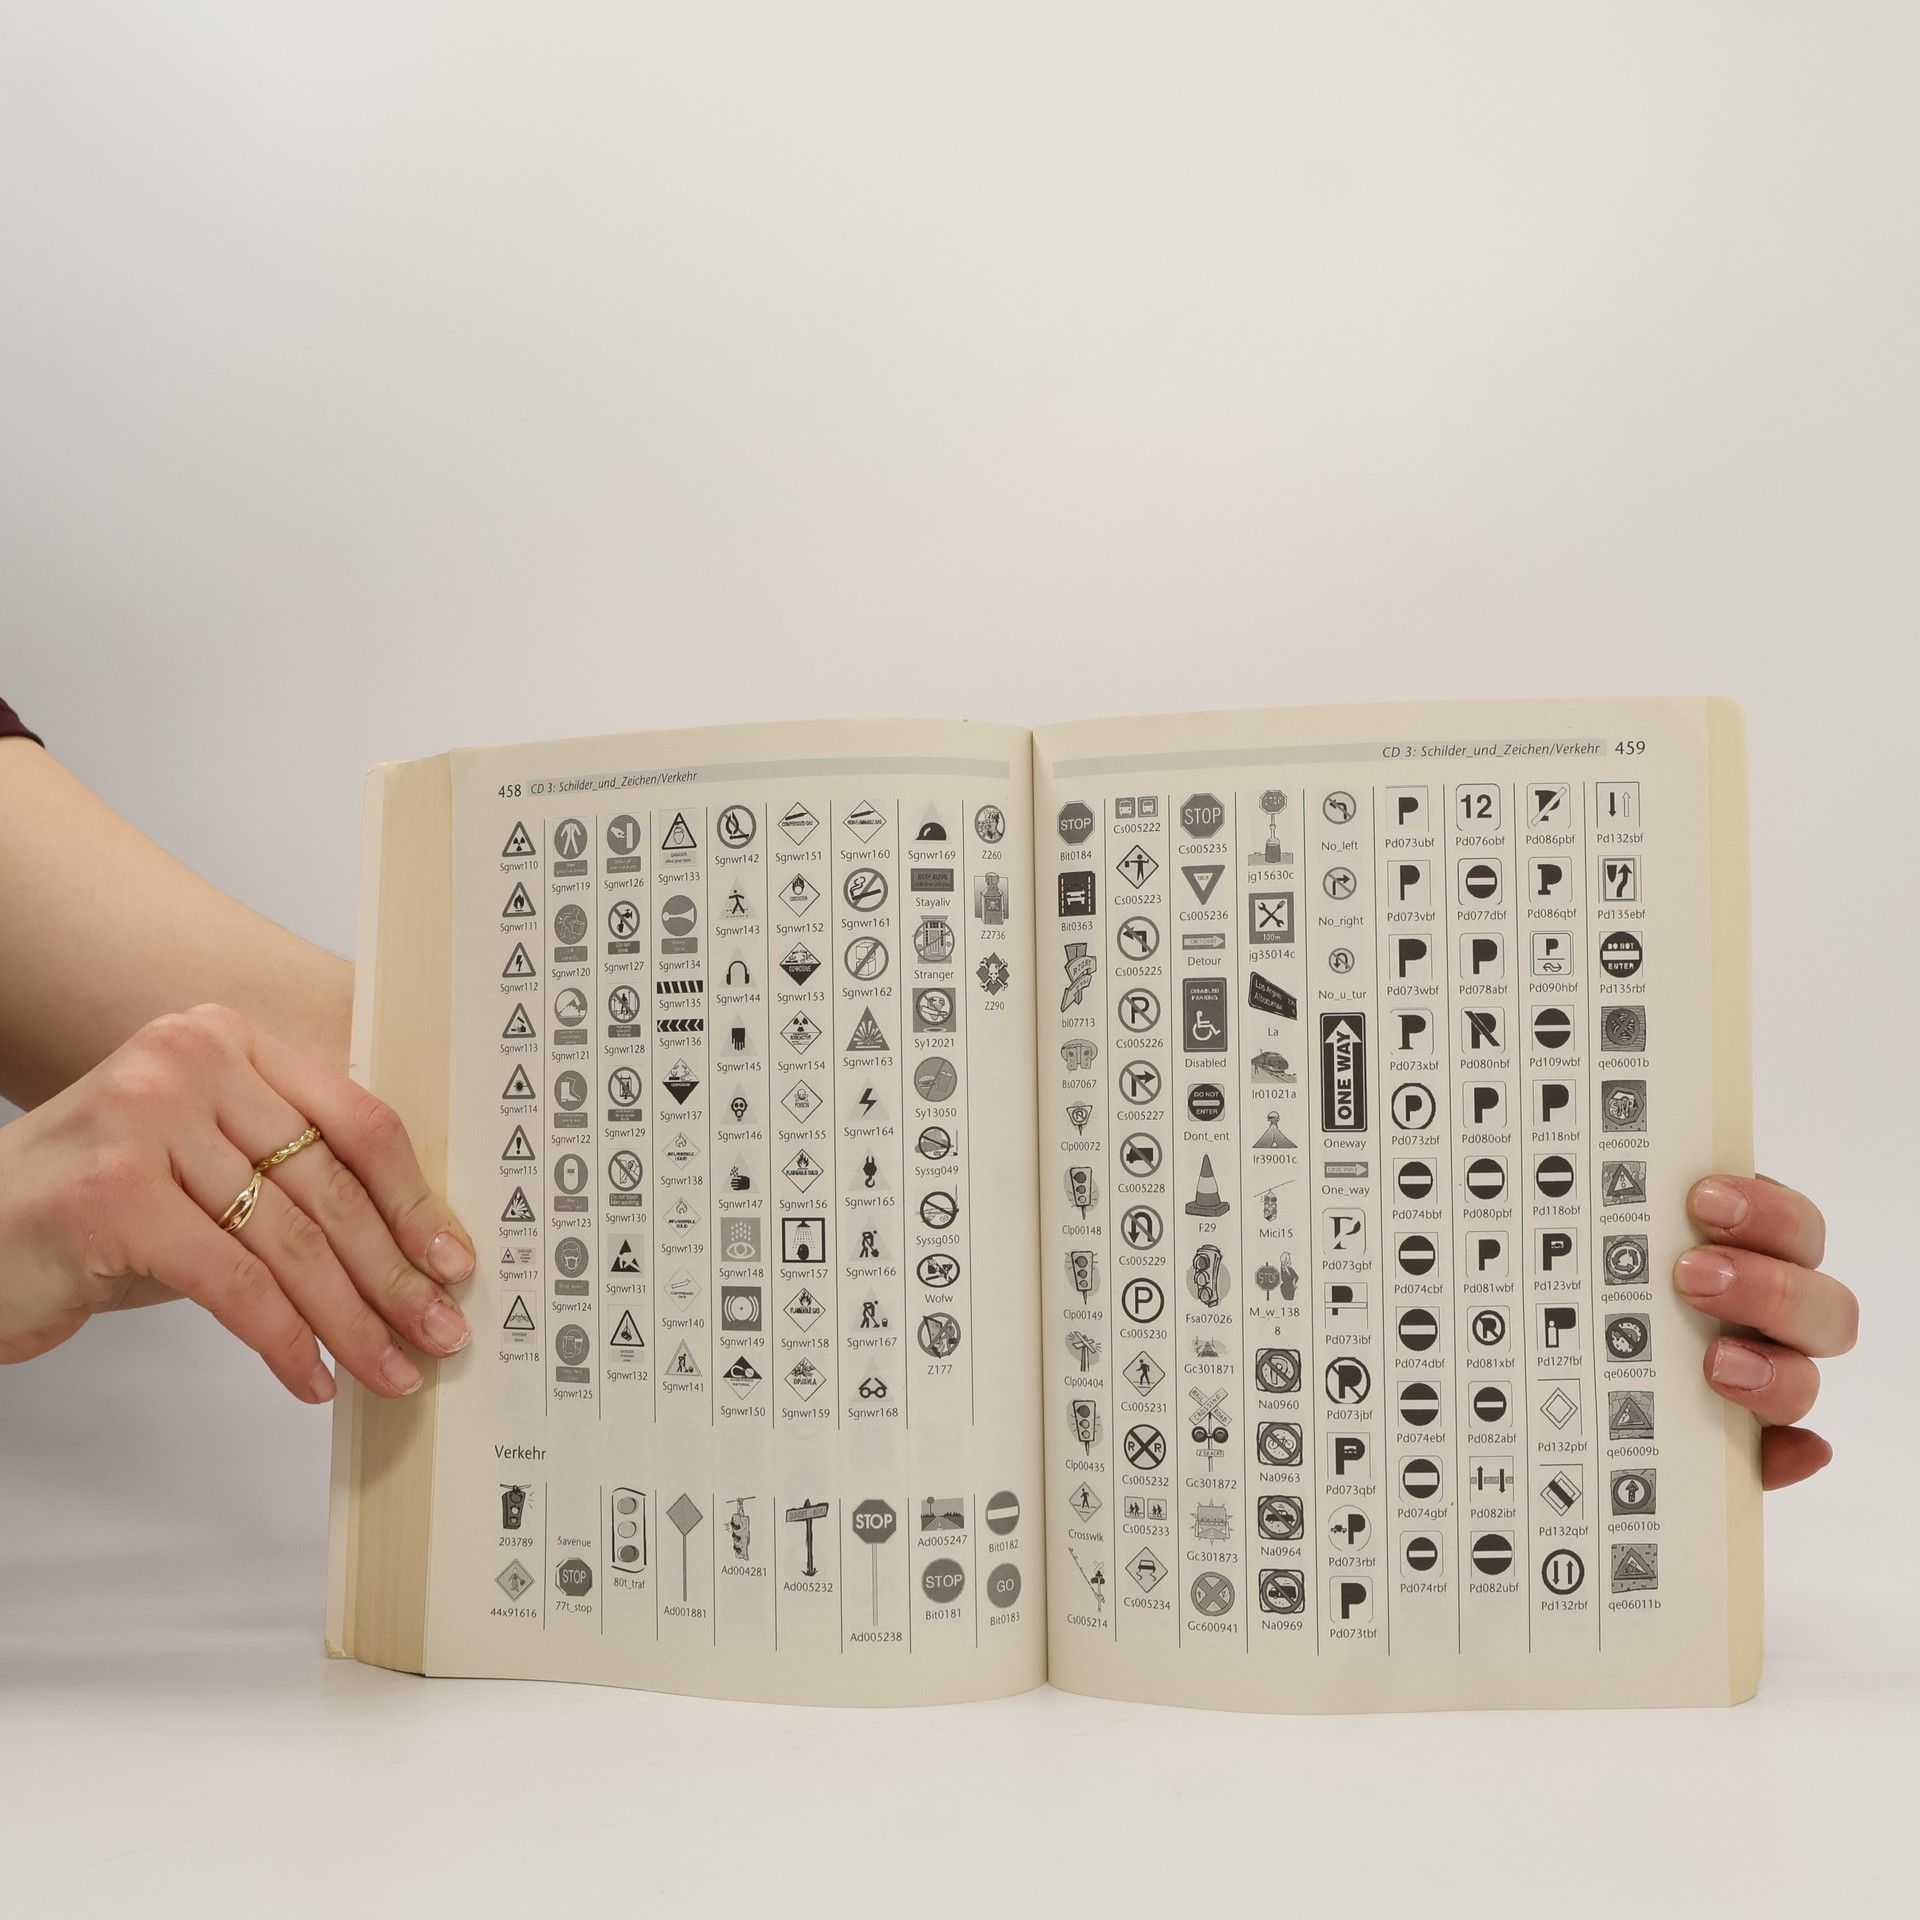 458 CD 3: Schilder_und_Zeichen/Verkehr
Sgnwr110
Sgnwr111
Sgnwr112
Sgnwr113
Sgnwr114
Sgnwr115
Sgnwr116
Sgnwr117
Sgnwr118
Sgnwr119
Sgnwr120
Sgnwr121
Sgnwr122
Sgnwr123
Sgnwr124
Sgnwr125
Sgnwr126
Sgnwr127
Sgnwr128
Sgnwr129
Sgnwr130
Sgnwr131
Sgnwr132
Sgnwr133
Sgnwr134
Sgnwr135
Sgnwr136
Sgnwr137
Sgnwr138
Sgnwr139
Sgnwr140
Sgnwr141
Sgnwr142
Sgnwr143
Sgnwr144
Sgnwr145
Sgnwr146
Sgnwr147
Sgnwr148
Sgnwr149
Sgnwr150
Sgnwr151
Sgnwr152
CORROSIVE
Sgnwr153
Sgnwr154
POISON
Sgnwr155
Sgnwr156
Sgnwr157
FLAMMABLE GAS
Sgnwr158
Sgnwr159
Sgnwr160
Sgnwr161
Sgnwr162
Sgnwr163
Sgnwr164
Sgnwr165
Sgnwr166
Sgnwr167
Sgnwr168
Sgnwr169
Stayaliv
Stranger
Sy12021
Sy13050
Syssg049
Syssg050
Wofw
Z177
Z260
Z2736
Z290
Verkehr
203789
44x91616
5avenue
STOP
77t_stop
80t_traf
Ad001881
Ad004281
Ad005232
STOP
Ad005238
Ad005247
STOP
Bit0181
Bit0182
GO
Bit0183
CD 3: Schilder_und_Zeichen/Verkehr 459
STOP
Bit0184
Bit0363
bl07713
Bs07067
Clp00072
Clp00148
Clp00149
Clp00404
Clp00435
Crosswlk
Cs005214
Cs005222
Cs005223
Cs005225
P
Cs005226
Cs005227
Cs005228
Cs005229
P
Cs005230
Cs005231
R R
Cs005232
Cs005233
Cs005234
STOP
Cs005235
Cs005236
DETOUR
Detour
DISABLED
PARKING
Disabled
DO NOT
ENTER
Dont_ent
F29
Fsa07026
Gc301871
Gc301872
Gc301873
Gc600941
STOP
jg15630c
100m
jg35014c
Los Angeles
La
lr01021a
lr39001c
Mici15
STOP
M_w_138
8
Na0960
Na0963
Na0964
Na0969
No_left
No_right
No_u_tur
ONE WAY
Oneway
ONE WAY
One_way
P
Pd073gbf
Pd073ibf
P
Pd073jbf
P
Pd073qbf
P
Pd073rbf
P
Pd073tbf
P
Pd073ubf
P
Pd073vbf
P
Pd073wbf
P
Pd073xbf
P
Pd073zbf
Pd074bbf
Pd074cbf
Pd074dbf
Pd074ebf
Pd074gbf
Pd074rbf
12
Pd076obf
Pd077dbf
P
Pd078abf
Pd080nbf
P
Pd080obf
Pd080pbf
P
Pd081wbf
Pd081xbf
Pd082abf
Pd082ibf
Pd082ubf
P
Pd086pbf
P
Pd086qbf
P
Pd090hbf
Pd109wbf
P
Pd118nbf
Pd118obf
P
Pd123vbf
P
Pd127fbf
Pd132pbf
Pd132qbf
Pd132rbf
Pd132sbf
Pd135ebf
DO NOT
ENTER
Pd135rbf
qe06001b
qe06002b
qe06004b
qe06006b
qe06007b
qe06009b
qe06010b
qe06011b